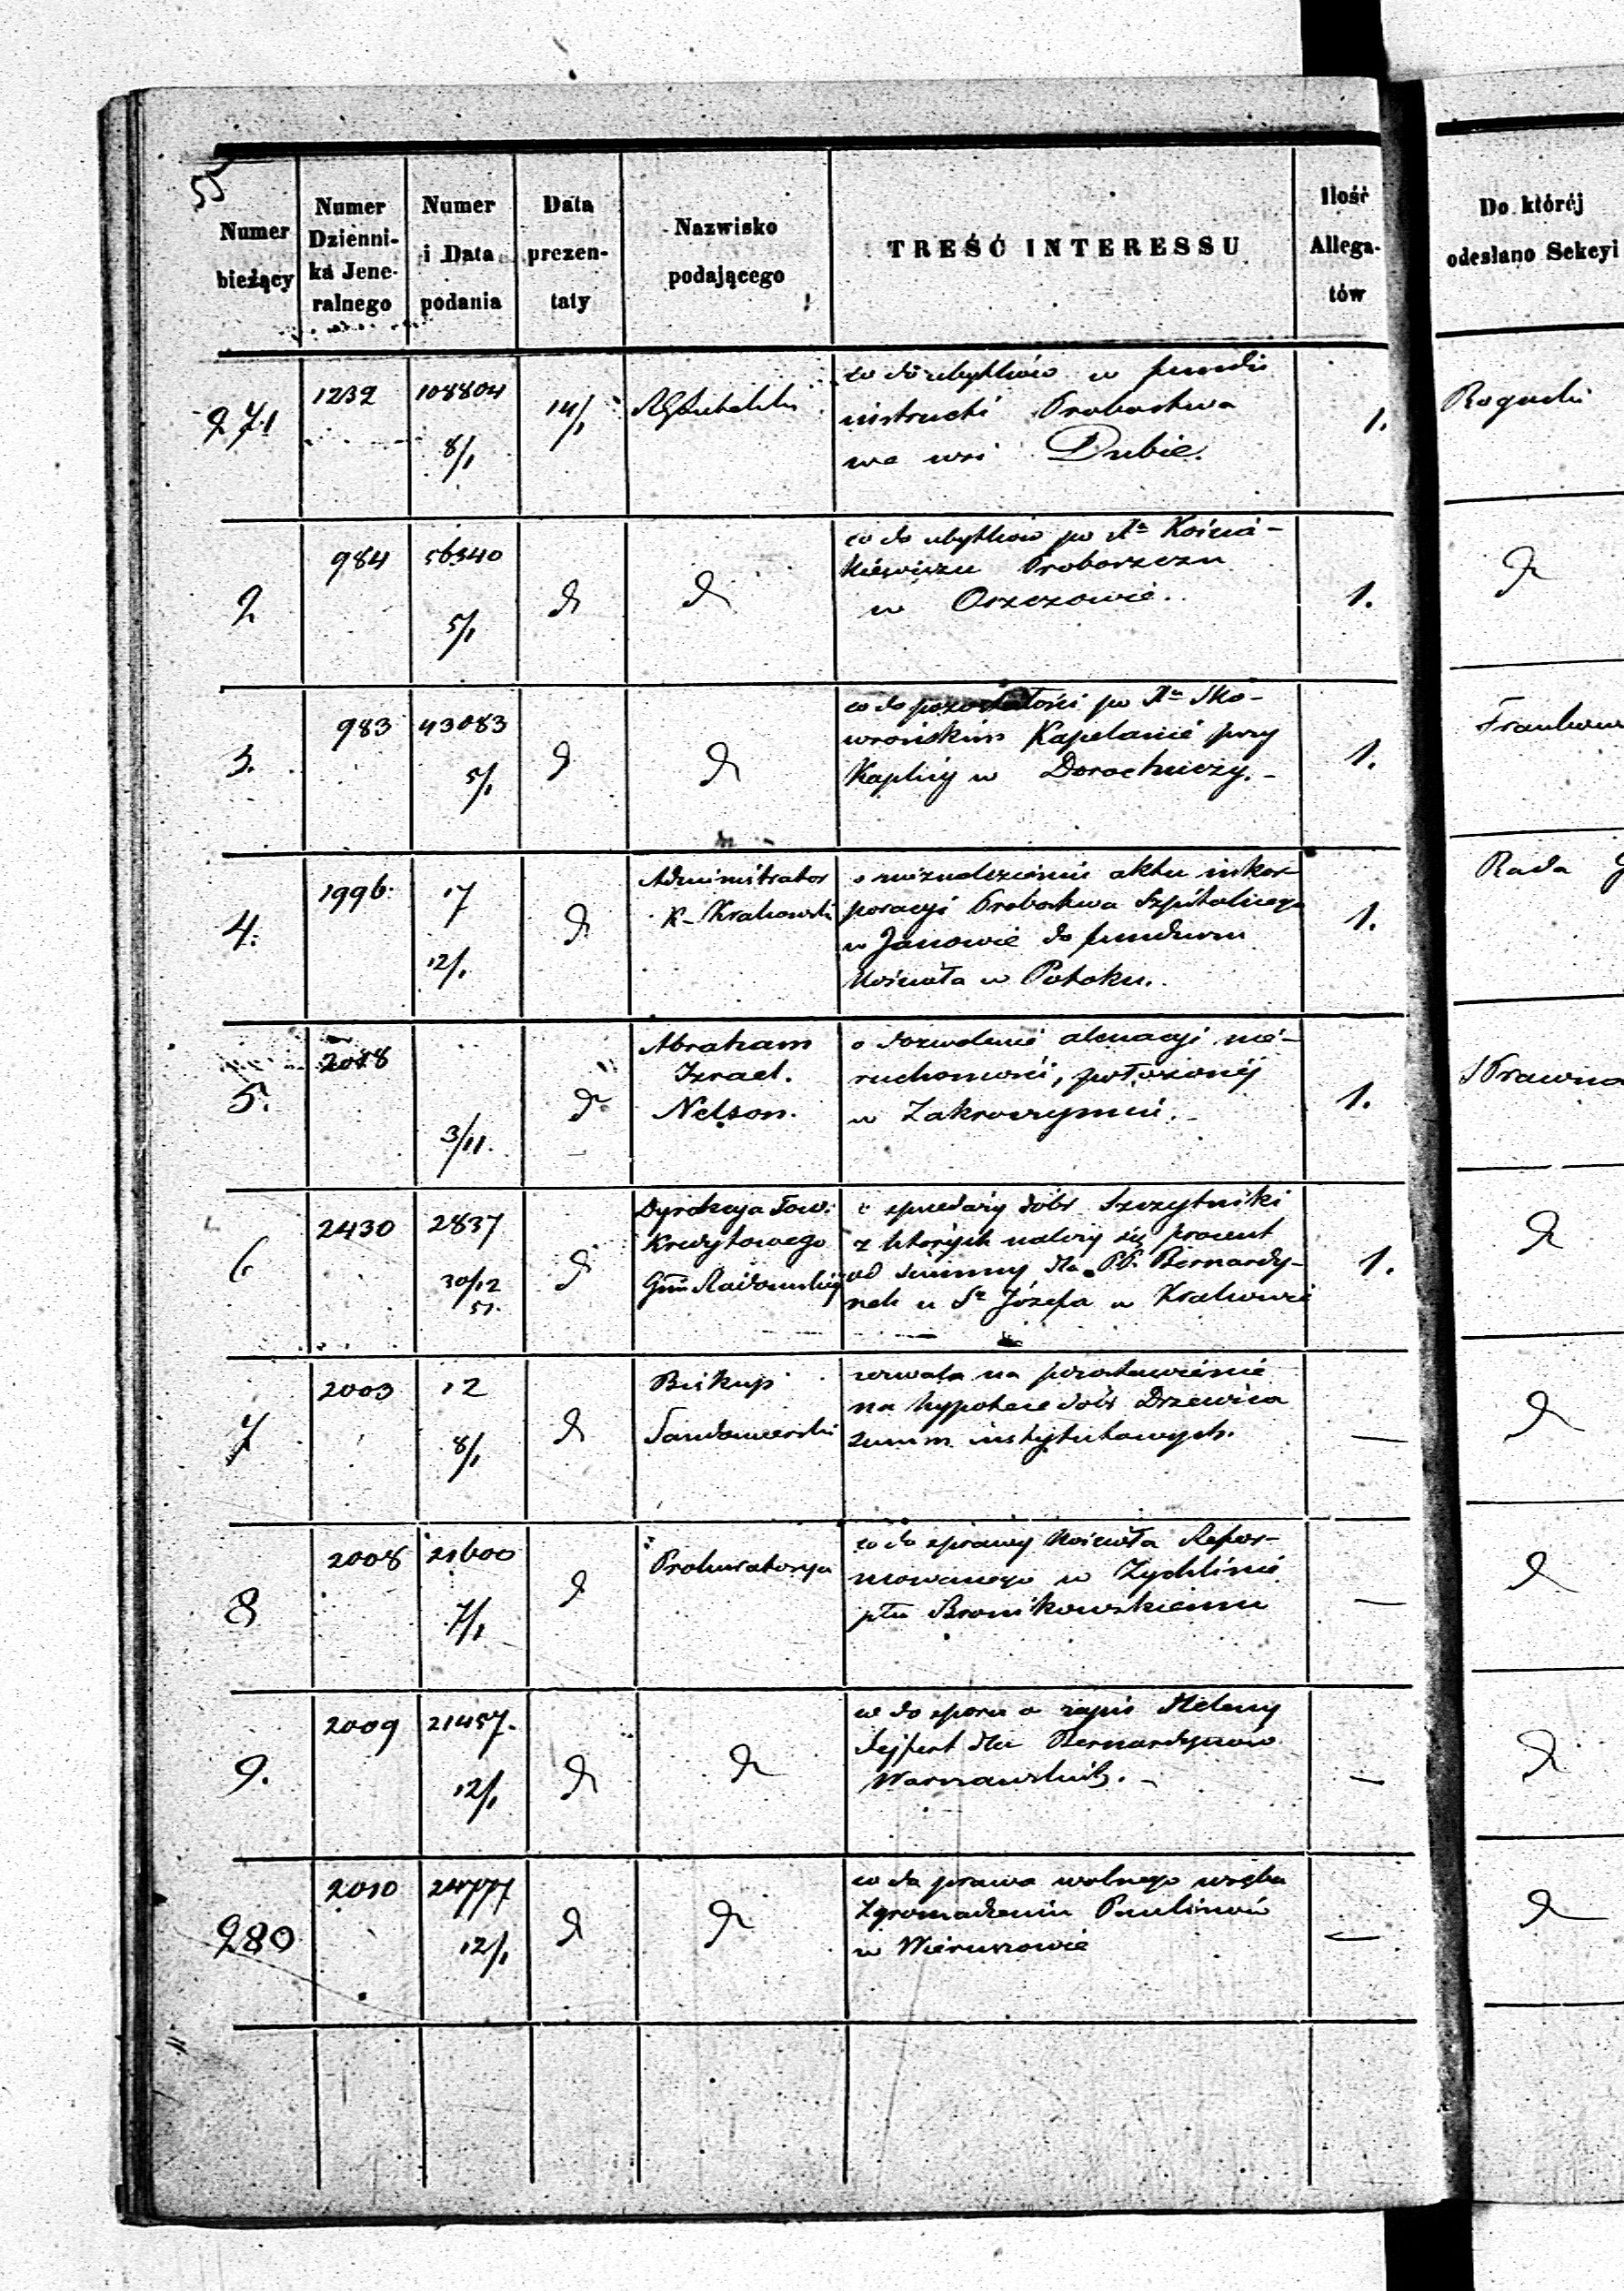 55
Numer bieżący
Numer Dzienni-ka Jene-ralnego
Numer i Data podania
Data prezen-taty
Nazwisko podającego
TREŚĆ INTERESSU
Ilość Allega-tów
Do którój odesłano Sekcyi
271
1232
108804
8/1
14/1
RGLubelski
co do ubytków w fundi
instructi Probostwa
we wsi Dubie.
1.
Roguski
2
984
56340
5/1
d
d
co do ubytków po Xn Kościa-
kiewiczu Proboszczu
w Orzczowie.
1.
d
3.
983
43083
5/1
d
d
co do pozostałości po Xn Sko-
wrońskim Kapelanie przy
Kaplicy w Dorochuczy.-
1.
4.
1996.
17
12/1.
d
Administrator
K- Krakowski
o nieznalezieniu aktu inkor-
poracyi Probostwa Szpitalnego
w Janowie do funduszu
Kościoła w Potoku.
1.
Rada
5.
2088
3/11.
d
Abraham
Izrael.
Nelson.
o dozwolenie alienacyi nie-
ruchomości, położonéj
w Zakroczymiu.-
1.
Prawna
6
2430
2837
30/12
51.
d
Dyrekcya Tow.
Kredytowego
Gnii Radomskiéj
o sprzedaży dóbr Szczytniki
z których należy się procent
od summy dla PP. Bernardy-
nek u Sr Józefa w Krakowie
1.
d
7
2003
12
8/1
d
Biskup
Sandomierski
zezwala na pozostawienie
na hypotece dóbr Drzewica
summ instytutowych.
—
d
8
2008
21600
7/1
d
Prokuratorya
co do sprawy Kościoła Refor-
mowanego w Zychlinie
pko Bronikowskiemu
—
d
9.
2009
21457.
12/1
d
d
co do sporu o zapis Heleny
Sejfert dla Bernardynów
Warszawskich.-
—
d
280
2010
24777
12/1
d
d
co do prawa wolnego wrębu
Zgromadzeniu Paulinów
w Wieruszowie
—
d